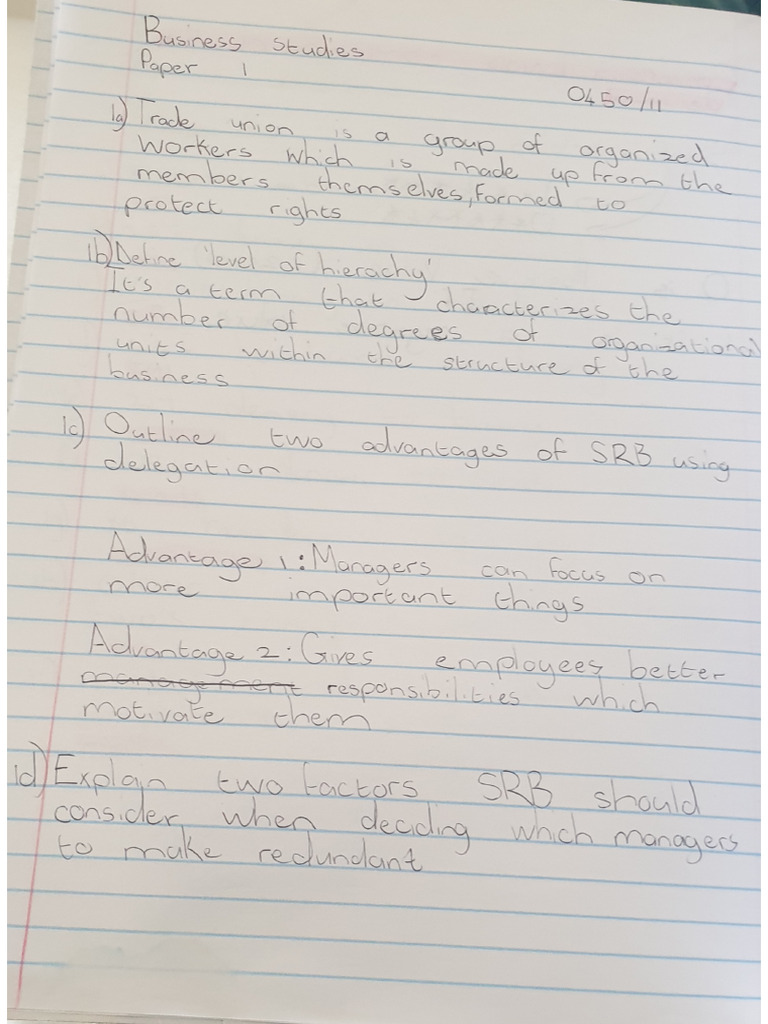 Business Studies
Paper 1
0450/11
1a) Trade union is a group of organized
workers which is made up from the
members themselves, formed to
protect rights
1b) Define 'level of hierachy'
It's a term that characterizes the
number of degrees of organizational
units within the structure of the
business
1c) Outline two advantages of SRB using
delegation
Advantage 1: Managers can focus on
more important things
Advantage 2: Gives employees better
management responsibilities which
motivate them
1d) Explain two factors SRB should
consider when deciding which managers
to make redundant